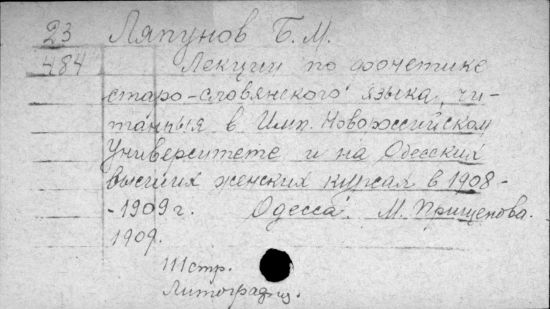 23 Ляпунов Б. М.
484 Лекции по фонетике
старо-словянского языка, чи-
танныя в Имп. Новороссийском
Университете и на Одесских
высших женских курсах в 1908-
-1909 г. Одесса. М. Прищепова.
1909.
111 стр.
Литографир.